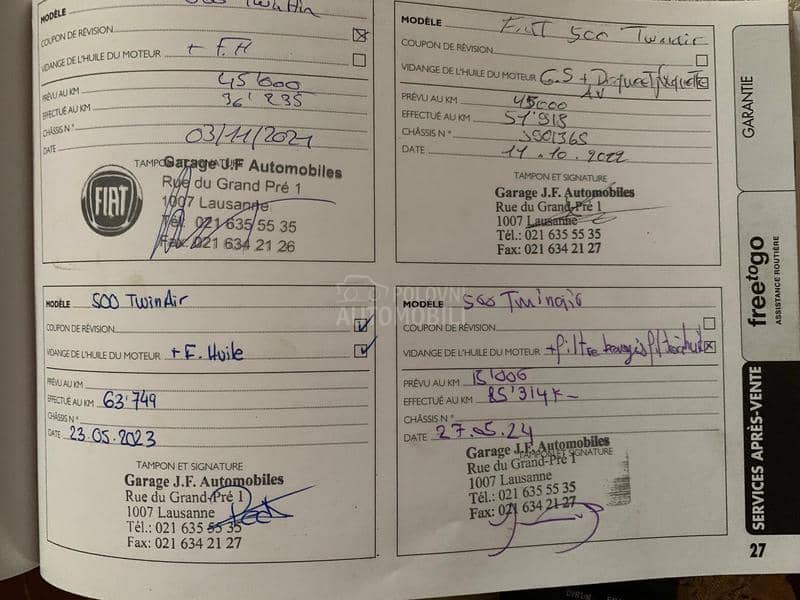 MODÈLE 500 TwinAir
COUPON DE RÉVISION
VIDANGE DE L'HUILE DU MOTEUR + F.H
PRÉVU AU KM 45'000
EFFECTUÉ AU KM 36'235
CHÂSSIS N°
DATE 03/11/2021
TAMPON ET SIGNATURE
Garage J.F Automobiles
Rue du Grand Pré 1
1007 Lausanne
Tél. 021 635 55 35
Fax 021 634 21 26
FIAT
MODÈLE FIAT 500 Twinair
COUPON DE RÉVISION
VIDANGE DE L'HUILE DU MOTEUR G.S + Disque + plaquette
AV
PRÉVU AU KM 45000
EFFECTUÉ AU KM 51'918
CHÂSSIS N° J901365
DATE 14.10.2022
TAMPON ET SIGNATURE
Garage J.F. Automobiles
Rue du Grand-Pré 1
1007 Lausanne
Tél.: 021 635 55 35
Fax: 021 634 21 27
MODÈLE 500 TwinAir
COUPON DE RÉVISION
VIDANGE DE L'HUILE DU MOTEUR + F. Huile
PRÉVU AU KM
EFFECTUÉ AU KM 63'749
CHÂSSIS N°
DATE 23.05.2023
TAMPON ET SIGNATURE
Garage J.F. Automobiles
Rue du Grand-Pré 1
1007 Lausanne
Tél.: 021 635 55 35
Fax: 021 634 21 27
MODÈLE 500 Twinair
COUPON DE RÉVISION
VIDANGE DE L'HUILE DU MOTEUR + filtre
PRÉVU AU KM
EFFECTUÉ AU KM 85'314K-
CHÂSSIS N°
DATE 27.05.24
TAMPON ET SIGNATURE
Garage J.F. Automobiles
Rue du Grand-Pré 1
1007 Lausanne
Tél.: 021 635 55 35
Fax: 021 634 21 27
POLOVNI
AUTOMOBILI
GARANTIE
freetogo
ASSISTANCE ROUTIÈRE
SERVICES APRÈS-VENTE
27